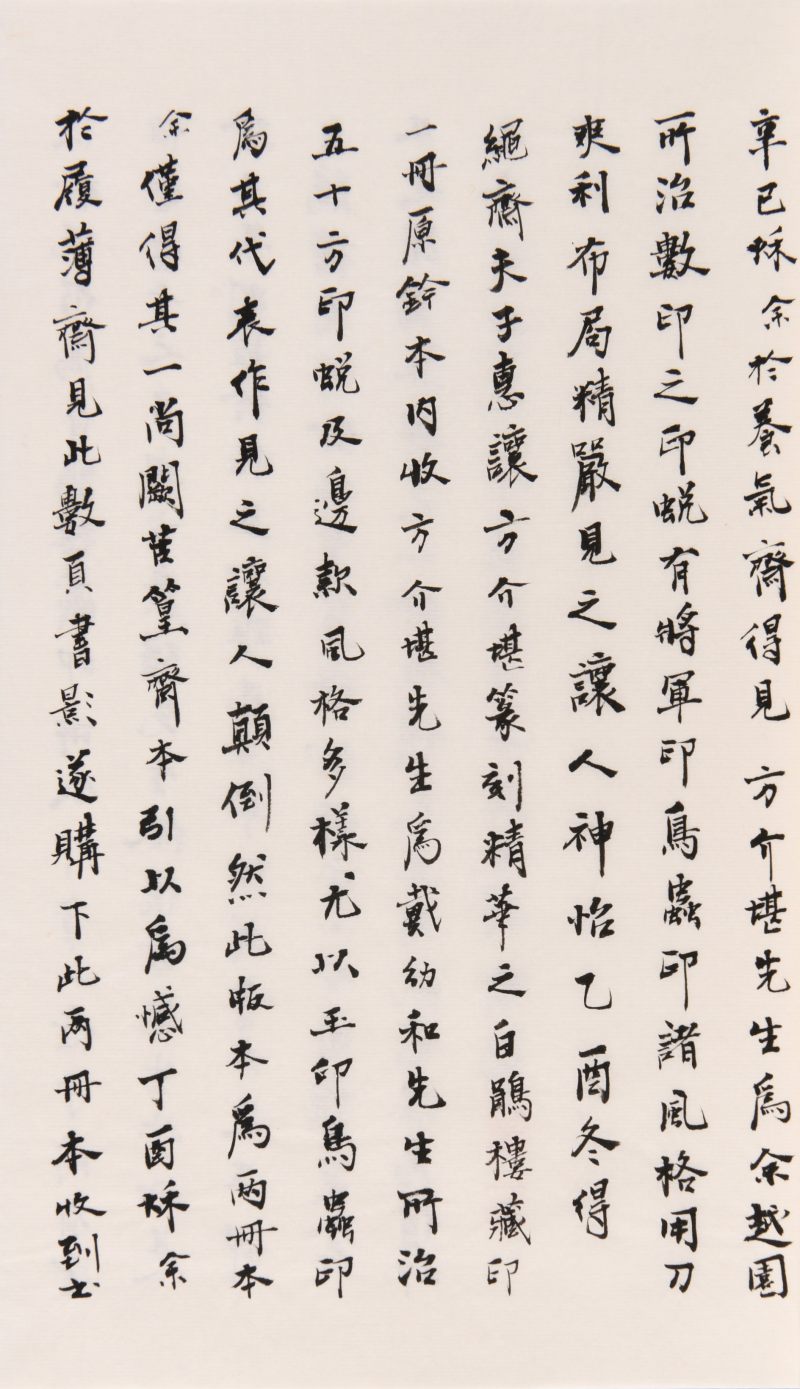 辛巳秌余於養氣齋得見方介堪先生爲余越園
所治數印之印蜕有將軍印鳥蟲印諸風格用刀
爽利布局精嚴見之讓人神怡乙酉冬得
繩齋夫子惠讓方介堪篆刻精華之白鵑樓藏印
一冊原鈐本内收方介堪先生爲戴幼和先生所治
五十方印蜕及邊款風格多樣尤以玉印鳥蟲印
爲其代表作見之讓人顛倒然此版本爲兩冊本
余僅得其一尚闕苦篁齋本引以爲憾丁酉秌余
於履薄齋見此數頁書影遂購下此兩冊本收到書